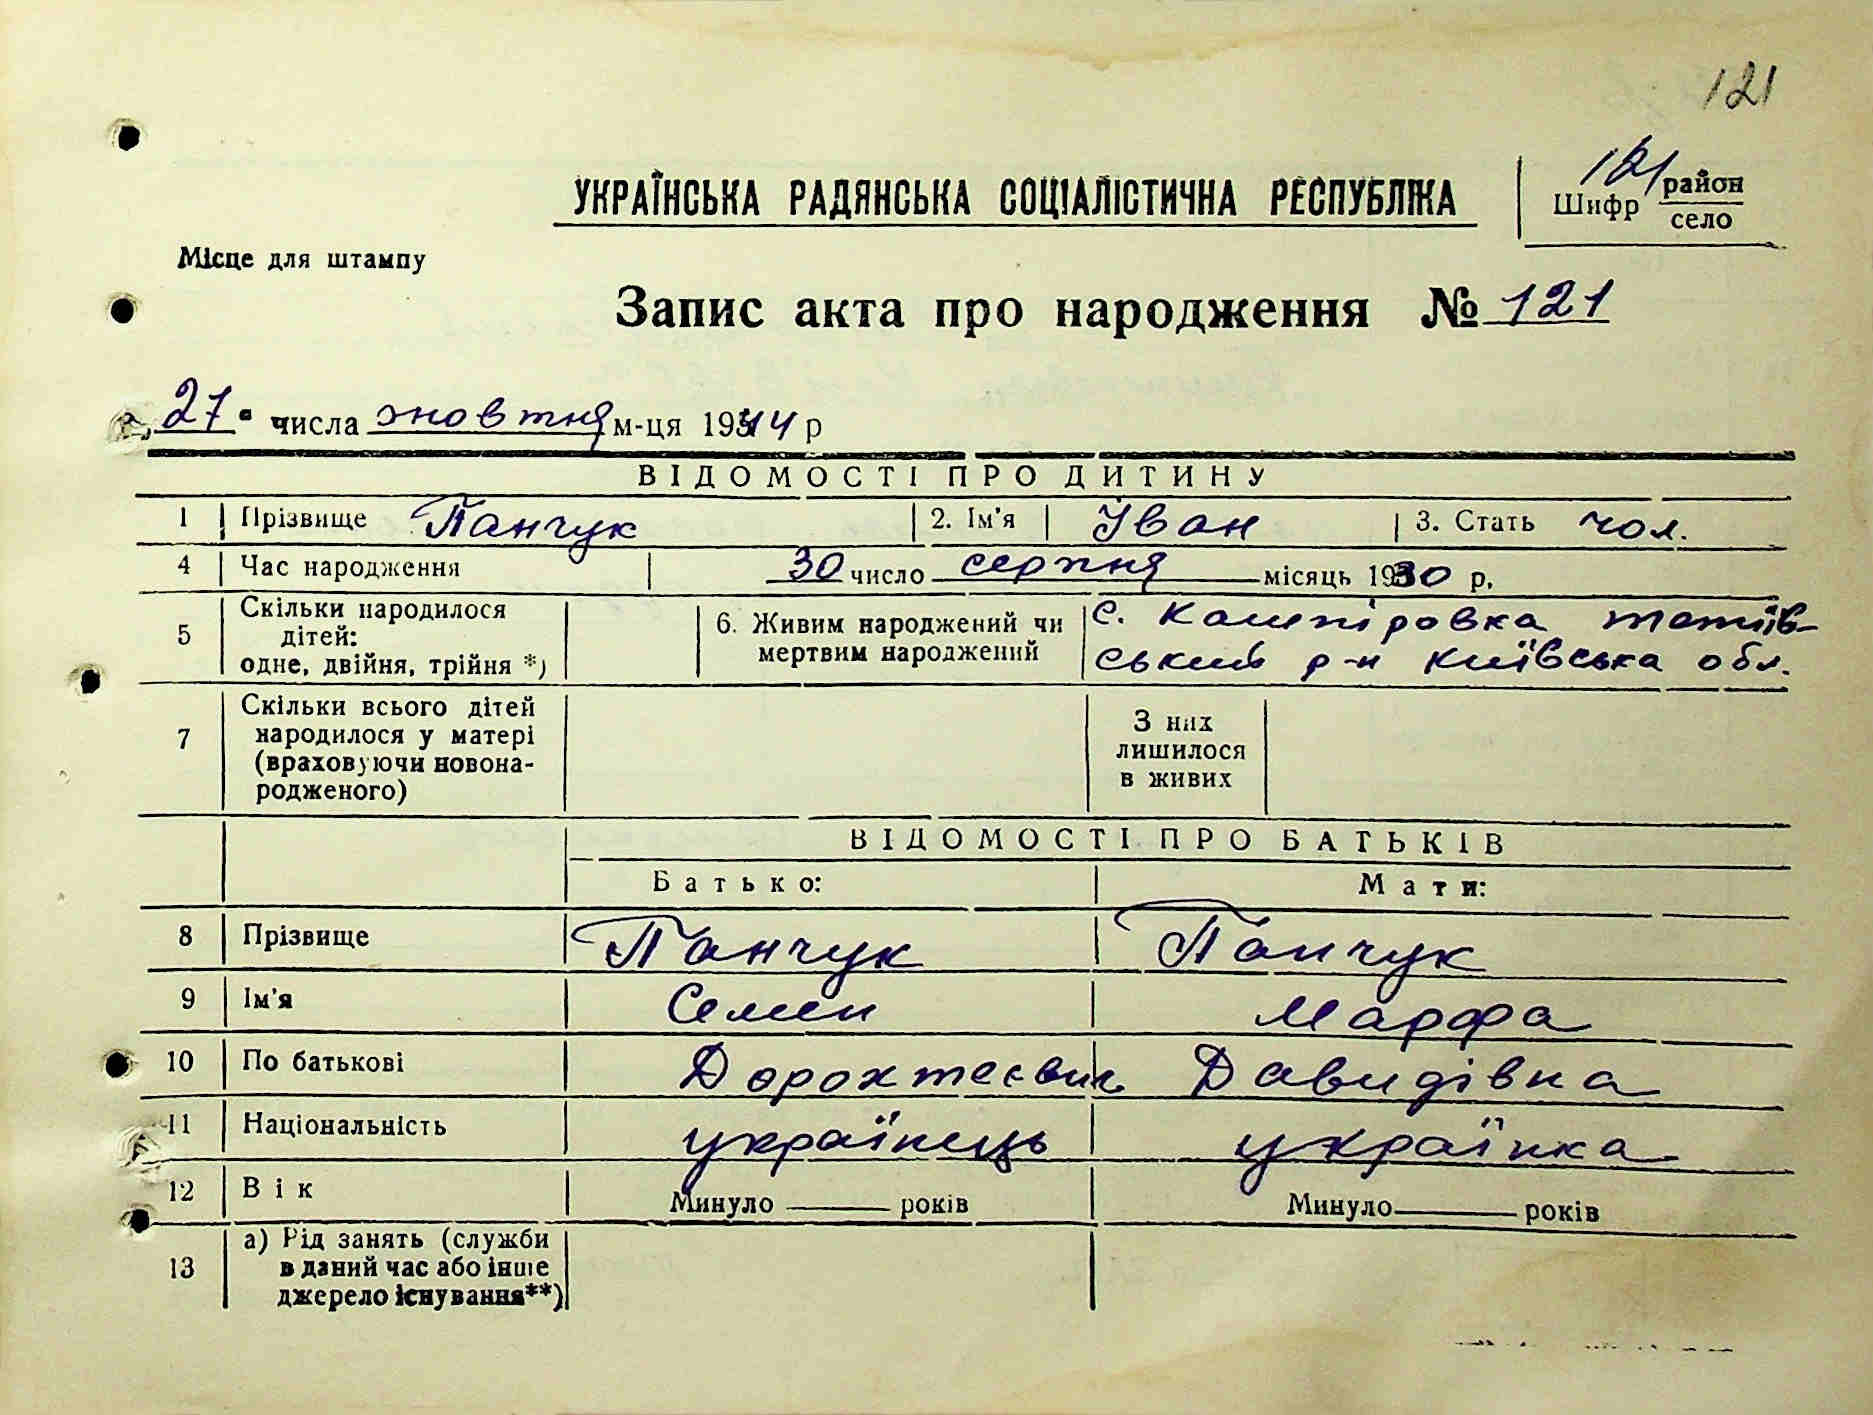 121
УКРАЇНСЬКА РАДЯНСЬКА СОЦІАЛІСТИЧНА РЕСПУБЛІКА
121
Шифр район
село
Місце для штампу
Запис акта про народження № 121
27 " числа жовтня м-ця 1944 р
ВІДОМОСТІ ПРО ДИТИНУ
1 Прізвище Панчук 2. Ім'я Іван 3. Стать чол.
4 Час народження 30 число серпня місяць 1930 р.
5 Скільки народилося дітей: одне, двійня, трійня *) 6. Живим народжений чи мертвим народжений с. Кашпіровка тетіїв-
ський р-н Київська обл.
7 Скільки всього дітей народилося у матері (враховуючи новона-
родженого) З них лишилося в живих
ВІДОМОСТІ ПРО БАТЬКІВ
Батько: Мати:
8 Прізвище Панчук Панчук
9 Ім'я Семен Марфа
10 По батькові Дорохтеєвич Давидівна
11 Національність українець українка
12 Вік Минуло років Минуло років
13 а) Рід занять (служби
в даний час або інше
джерело існування**)